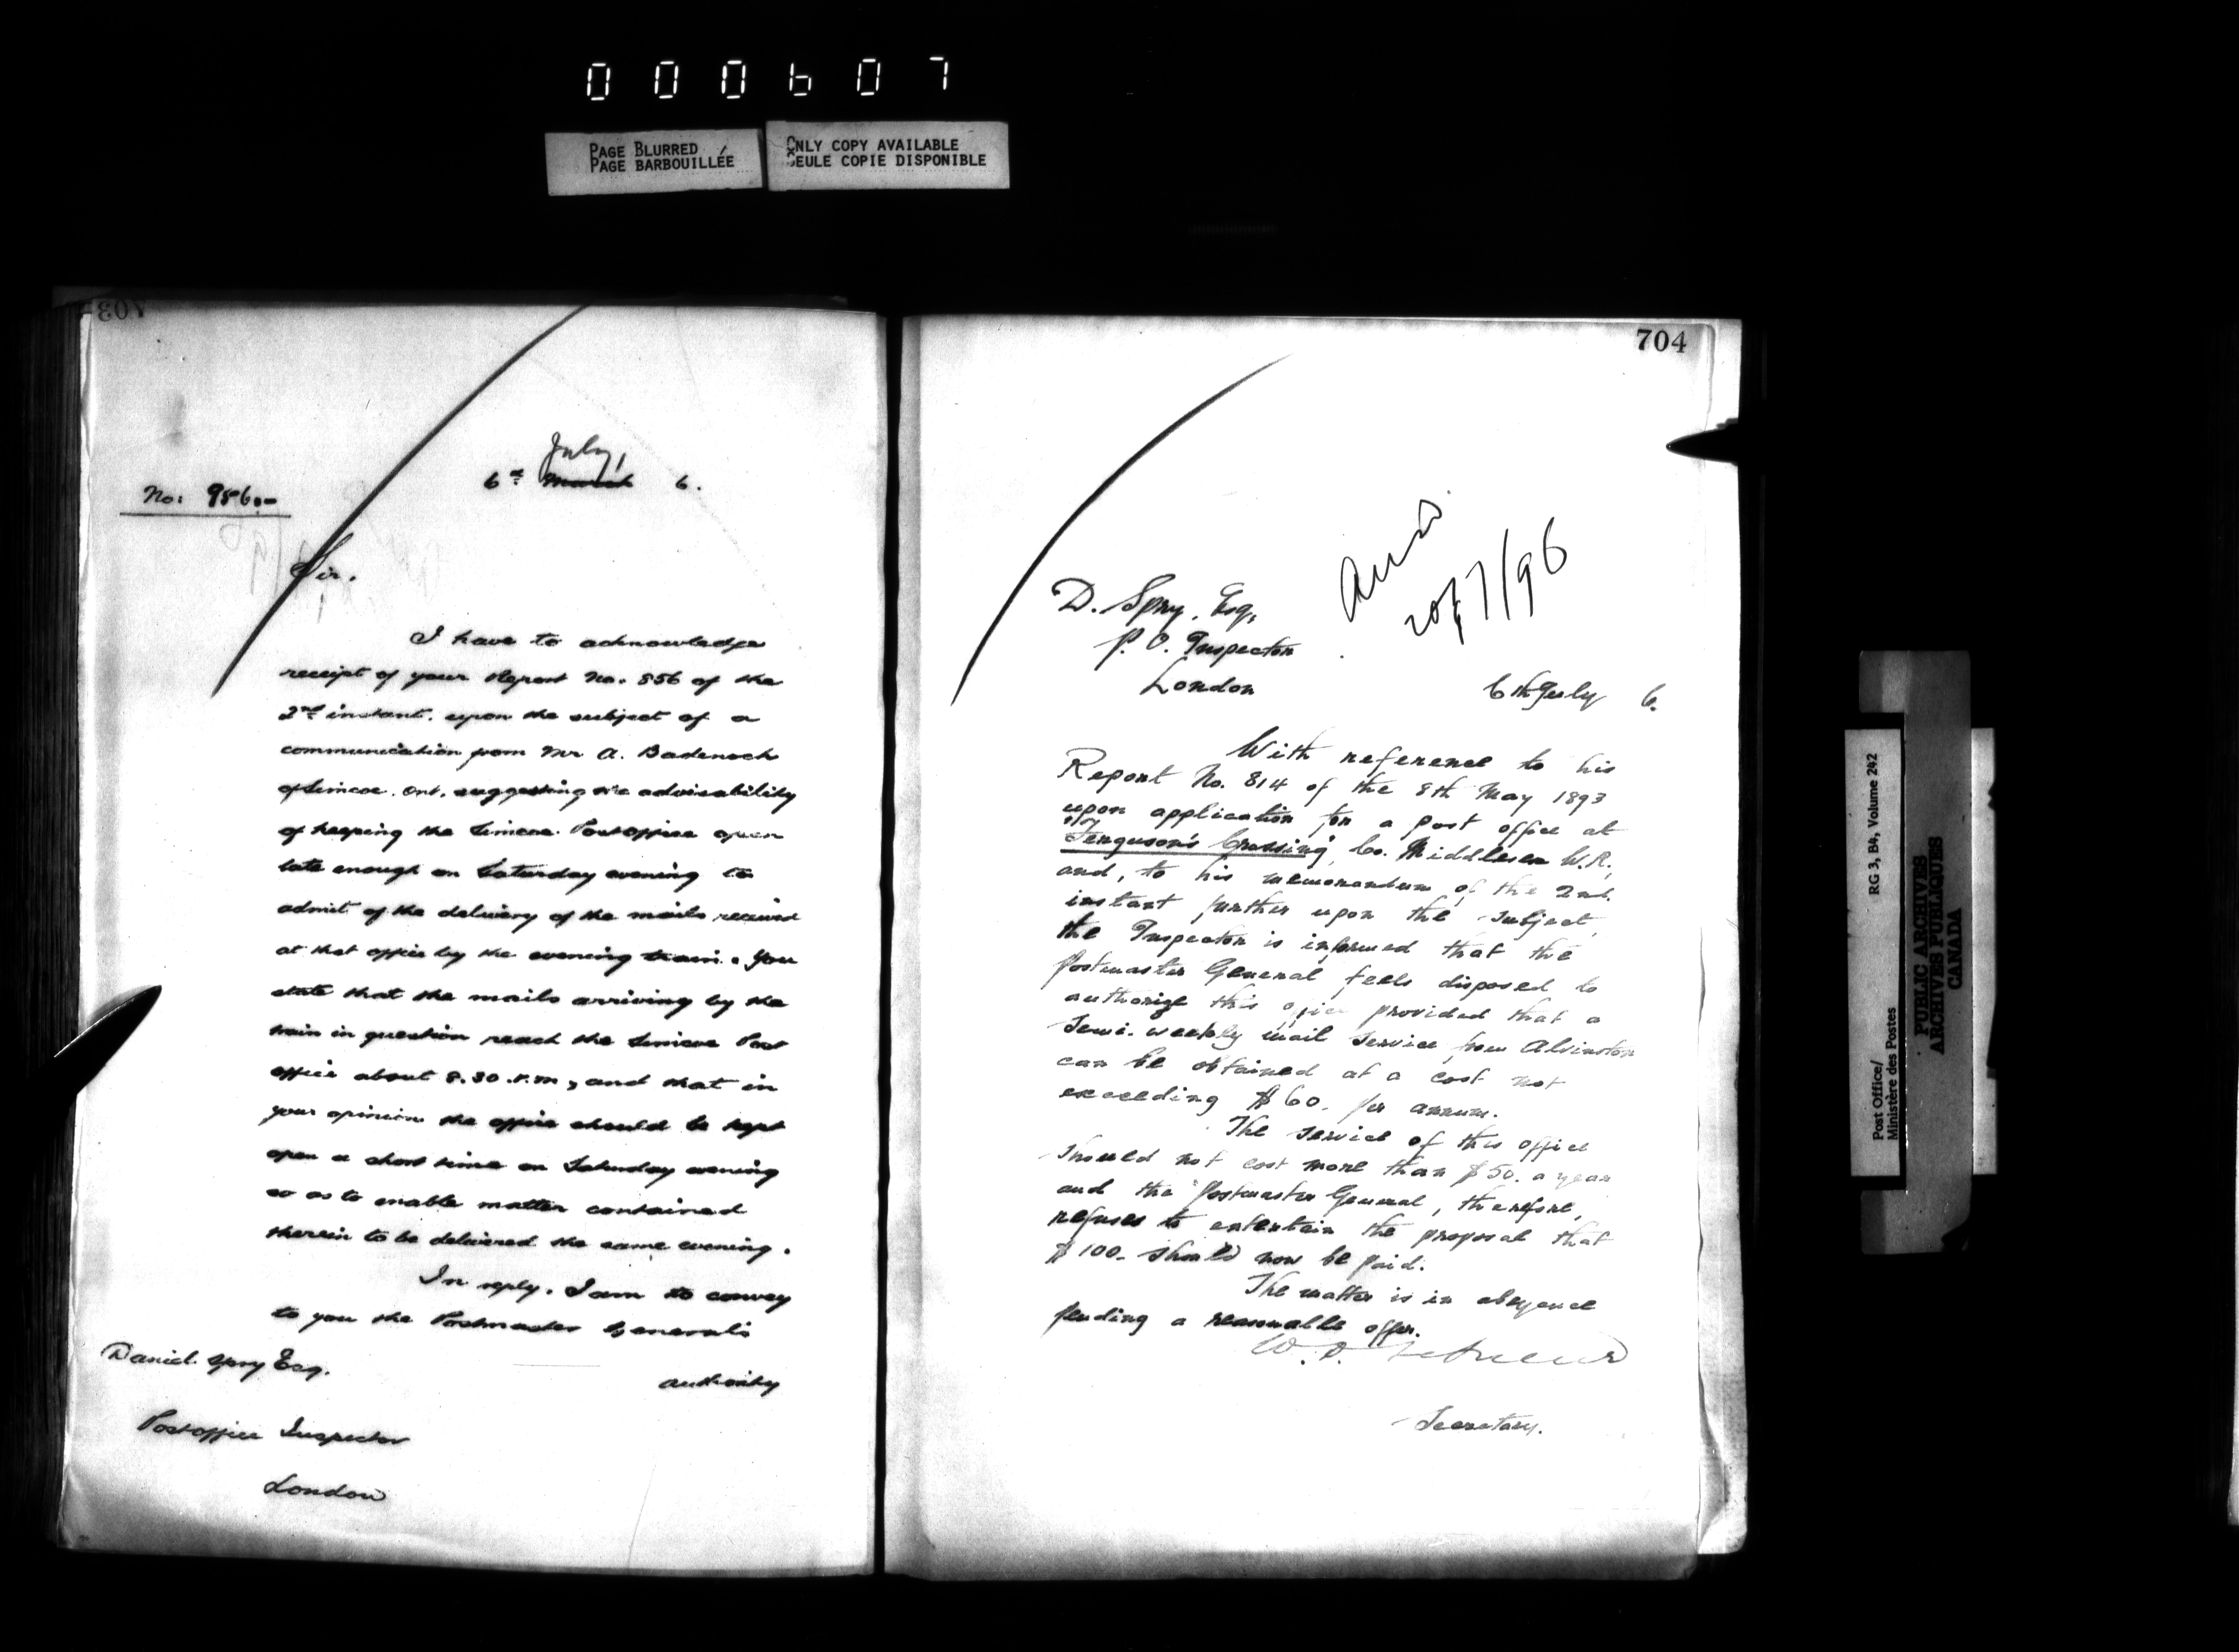 000607
PAGE BLURRED
PAGE BARBOUILLÉE
ONLY COPY AVAILABLE
SEULE COPIE DISPONIBLE
703
July,
6th March 6.
No: 956.-
Sir.
I have to acknowledge
receipt of your Report No. 856 of the
2nd instant, upon the subject of a
communication from Mr A. Badenoch
of Simcoe. Ont. suggesting the advisability
of keeping the Simcoe Post office open
late enough on Saturday evening to
admit of the delivery of the mails received
at that office by the evening train. You
state that the mails arriving by the
train in question reach the Simcoe Post
office about 8.30 P.M., and that in
your opinion the office should be kept
open a short time on Saturday evening
so as to enable matter contained
therein to be delivered the same evening.
In reply, I am to convey
to you the Postmaster General's
authority
Daniel Spry Esq.
Post office Inspector
London
704
20/7/96
D. Spry. Esq,
P.O. Inspector
London
6th July 6.
With reference to his
Report No. 814 of the 8th May 1893
upon application for a post office at
Ferguson's Crossing, Co. Middlesex W.R.,
and, to his memorandum of the 2nd.
instant further upon the subject,
the Inspector is informed that the
Postmaster General feels disposed to
authorize this office provided that a
Semi-weekly mail service from Alvinston
can be obtained at a cost not
exceeding $60. per annum.
The service of this office
should not cost more than $50. a year
and the Postmaster General, therefore,
refuses to entertain the proposal that
$100- should now be paid.
The matter is in abeyance
pending a reasonable offer.
W.D.
Secretary.
Post Office/
Ministère des Postes
RG 3, B4, Volume 242
PUBLIC ARCHIVES
ARCHIVES PUBLIQUES
CANADA